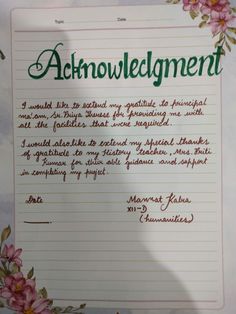 Topic
Date
Acknowledgment
I would like to extend my gratitude to principal
ma'am, Sr. Priya Therese for providing me with
all the facilities that were required.
I would also like to extend my special thanks
of gratitude to my History teacher, Mrs. Priti
Kumar for their able guidance and support
in completing my project.
Date Mannat Kalra
XII-D
(humanities)